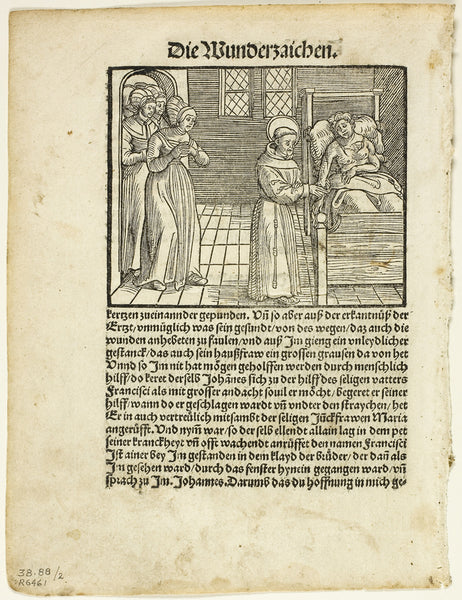 Die Wunderzaichen.
kertzen zueinannder gepunden. Vn̄ so aber auß der erkantnüß der
Ertzt/vnmüglich was sein gesundt/von des wegen/daz auch die
wunden anhebeten zu faulen/vnd auß Jm gieng ein vnleydlicher
gestanck/das auch sein haußfraw ein grossen grausen da von het
Vnnd so Jm nit hat mögen geholffen werden durch menschlich
hilff/do keret derselb Johānes sich zu der hilff des seligen vatters
Francisci als mit grosser andacht souil er mocht/begeret er seiner
hilff/wann do er geschlagen wardt vn̄ vndter den straychen/het
Er in auch vertreülich mitsambt der seligen Jūckfrawen Maria
angerüfft. Vnd nym̄ war/so der selb ellendt allain lag in dem pet
seiner kranckheyt vn̄ offt wachendt anrüffet den namen Francisci
Jst ainer bey Jm gestanden in dem klayd der brüder/der dañ als
Jn gesehen ward/durch das fenster hynein gegangen ward/vn̄
sprach zu Jm. Johannes. Darumb das du hoffnung in mich ge-
38.88/2
R6461